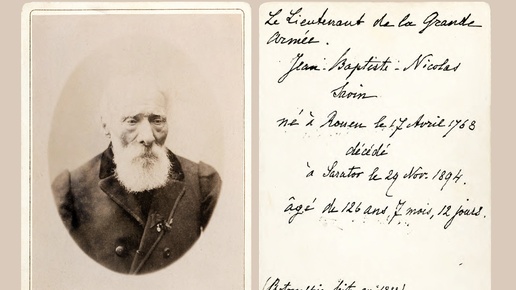 Le Lieutenant de la Grande
Armée.
Jean-Baptiste-Nicolas
Savin
né à Rouen le 17 Avril 1768
décédé
à Saratov le 29 Nov. 1894.
âgé de 126 ans, 7 mois, 12 jours.